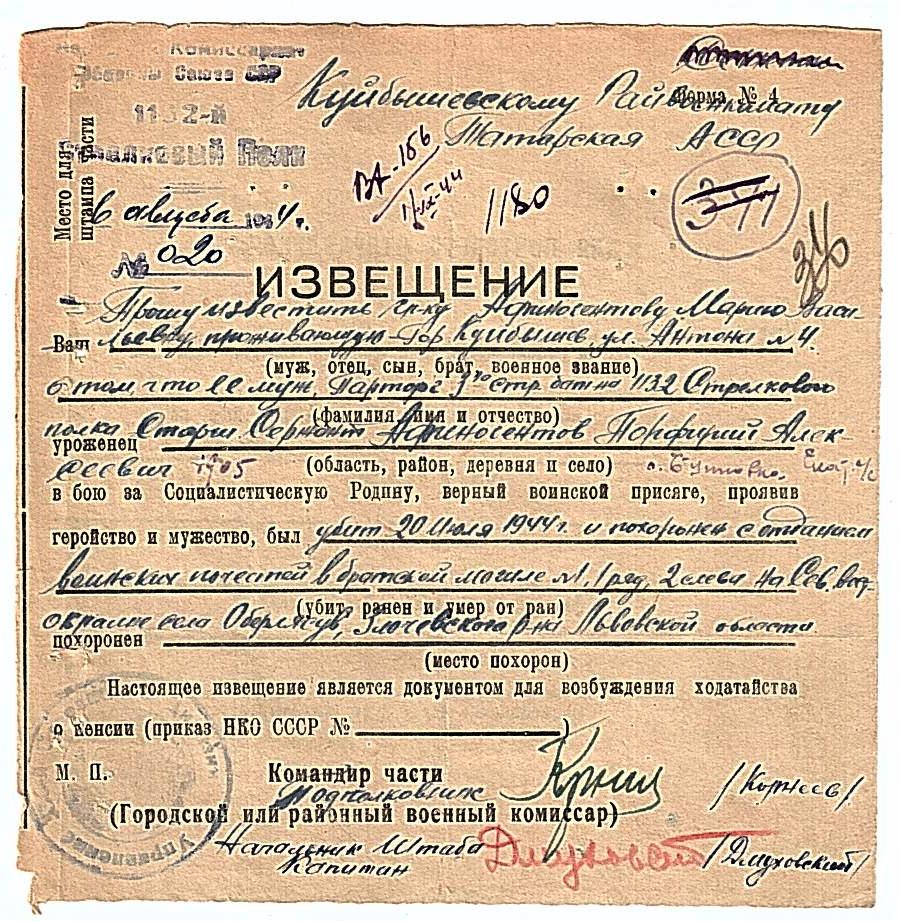 Народный Комиссариат
Обороны Союза ССР
1132-й
Стрелковый Полк
Место для
штампа части
6 августа 1944 г.
№ 020
Куйбышевскому Райвоенкомату
Форма № 4
Татарская АССР
ВА-156
1/IX-44
1180
311
376
ИЗВЕЩЕНИЕ
Прошу известить гр-ку Афиногентову Марию Васи
Ваш льевну, проживающую Гор. Куйбышев, ул. Антона № 4.
(муж, отец, сын, брат, военное звание)
о том, что ее муж, Парторг 3го стр. бат-на 1132 Стрелкового
(фамилия, имя и отчество)
полка Старш. Сержант Афиногентов Порфирий Алек-
уроженец
сеевич 1905
(область, район, деревня и село)
в бою за Социалистическую Родину, верный воинской присяге, проявив
геройство и мужество, был убит 20 июля 1944 г. и похоронен с отданием
воинских почестей в братской могиле № 1, 1 ряд, 2 слева на Сев. вост.
(убит, ранен и умер от ран)
окраине села Обертув, Злочевского р-на Львовской области
похоронен
(место похорон)
Настоящее извещение является документом для возбуждения ходатайства
о пенсии (приказ НКО СССР № )
М. П.
Командир части
Подполковник
/Корнеев/
(Городской или районный военный комиссар)
Начальник Штаба
Капитан
Дмуховский
/Дмуховский/